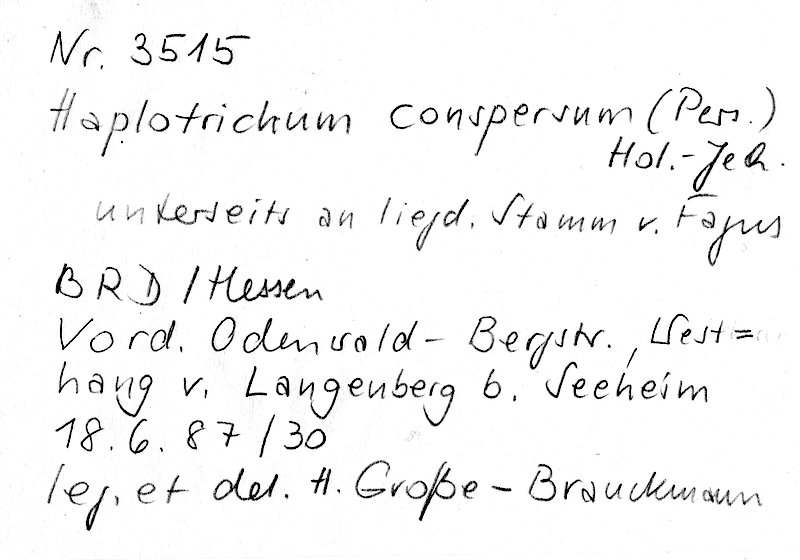 Nr. 3515
Haplotrichum conspersum (Pers.)
Hol.-Jech.
unterseits an liegd. Stamm v. Fagus
BRD / Hessen
Vord. Odenwald - Bergstr., West=
hang v. Langenberg b. Seeheim
18.6.87/30
leg. et det. H. Große - Brauckmann